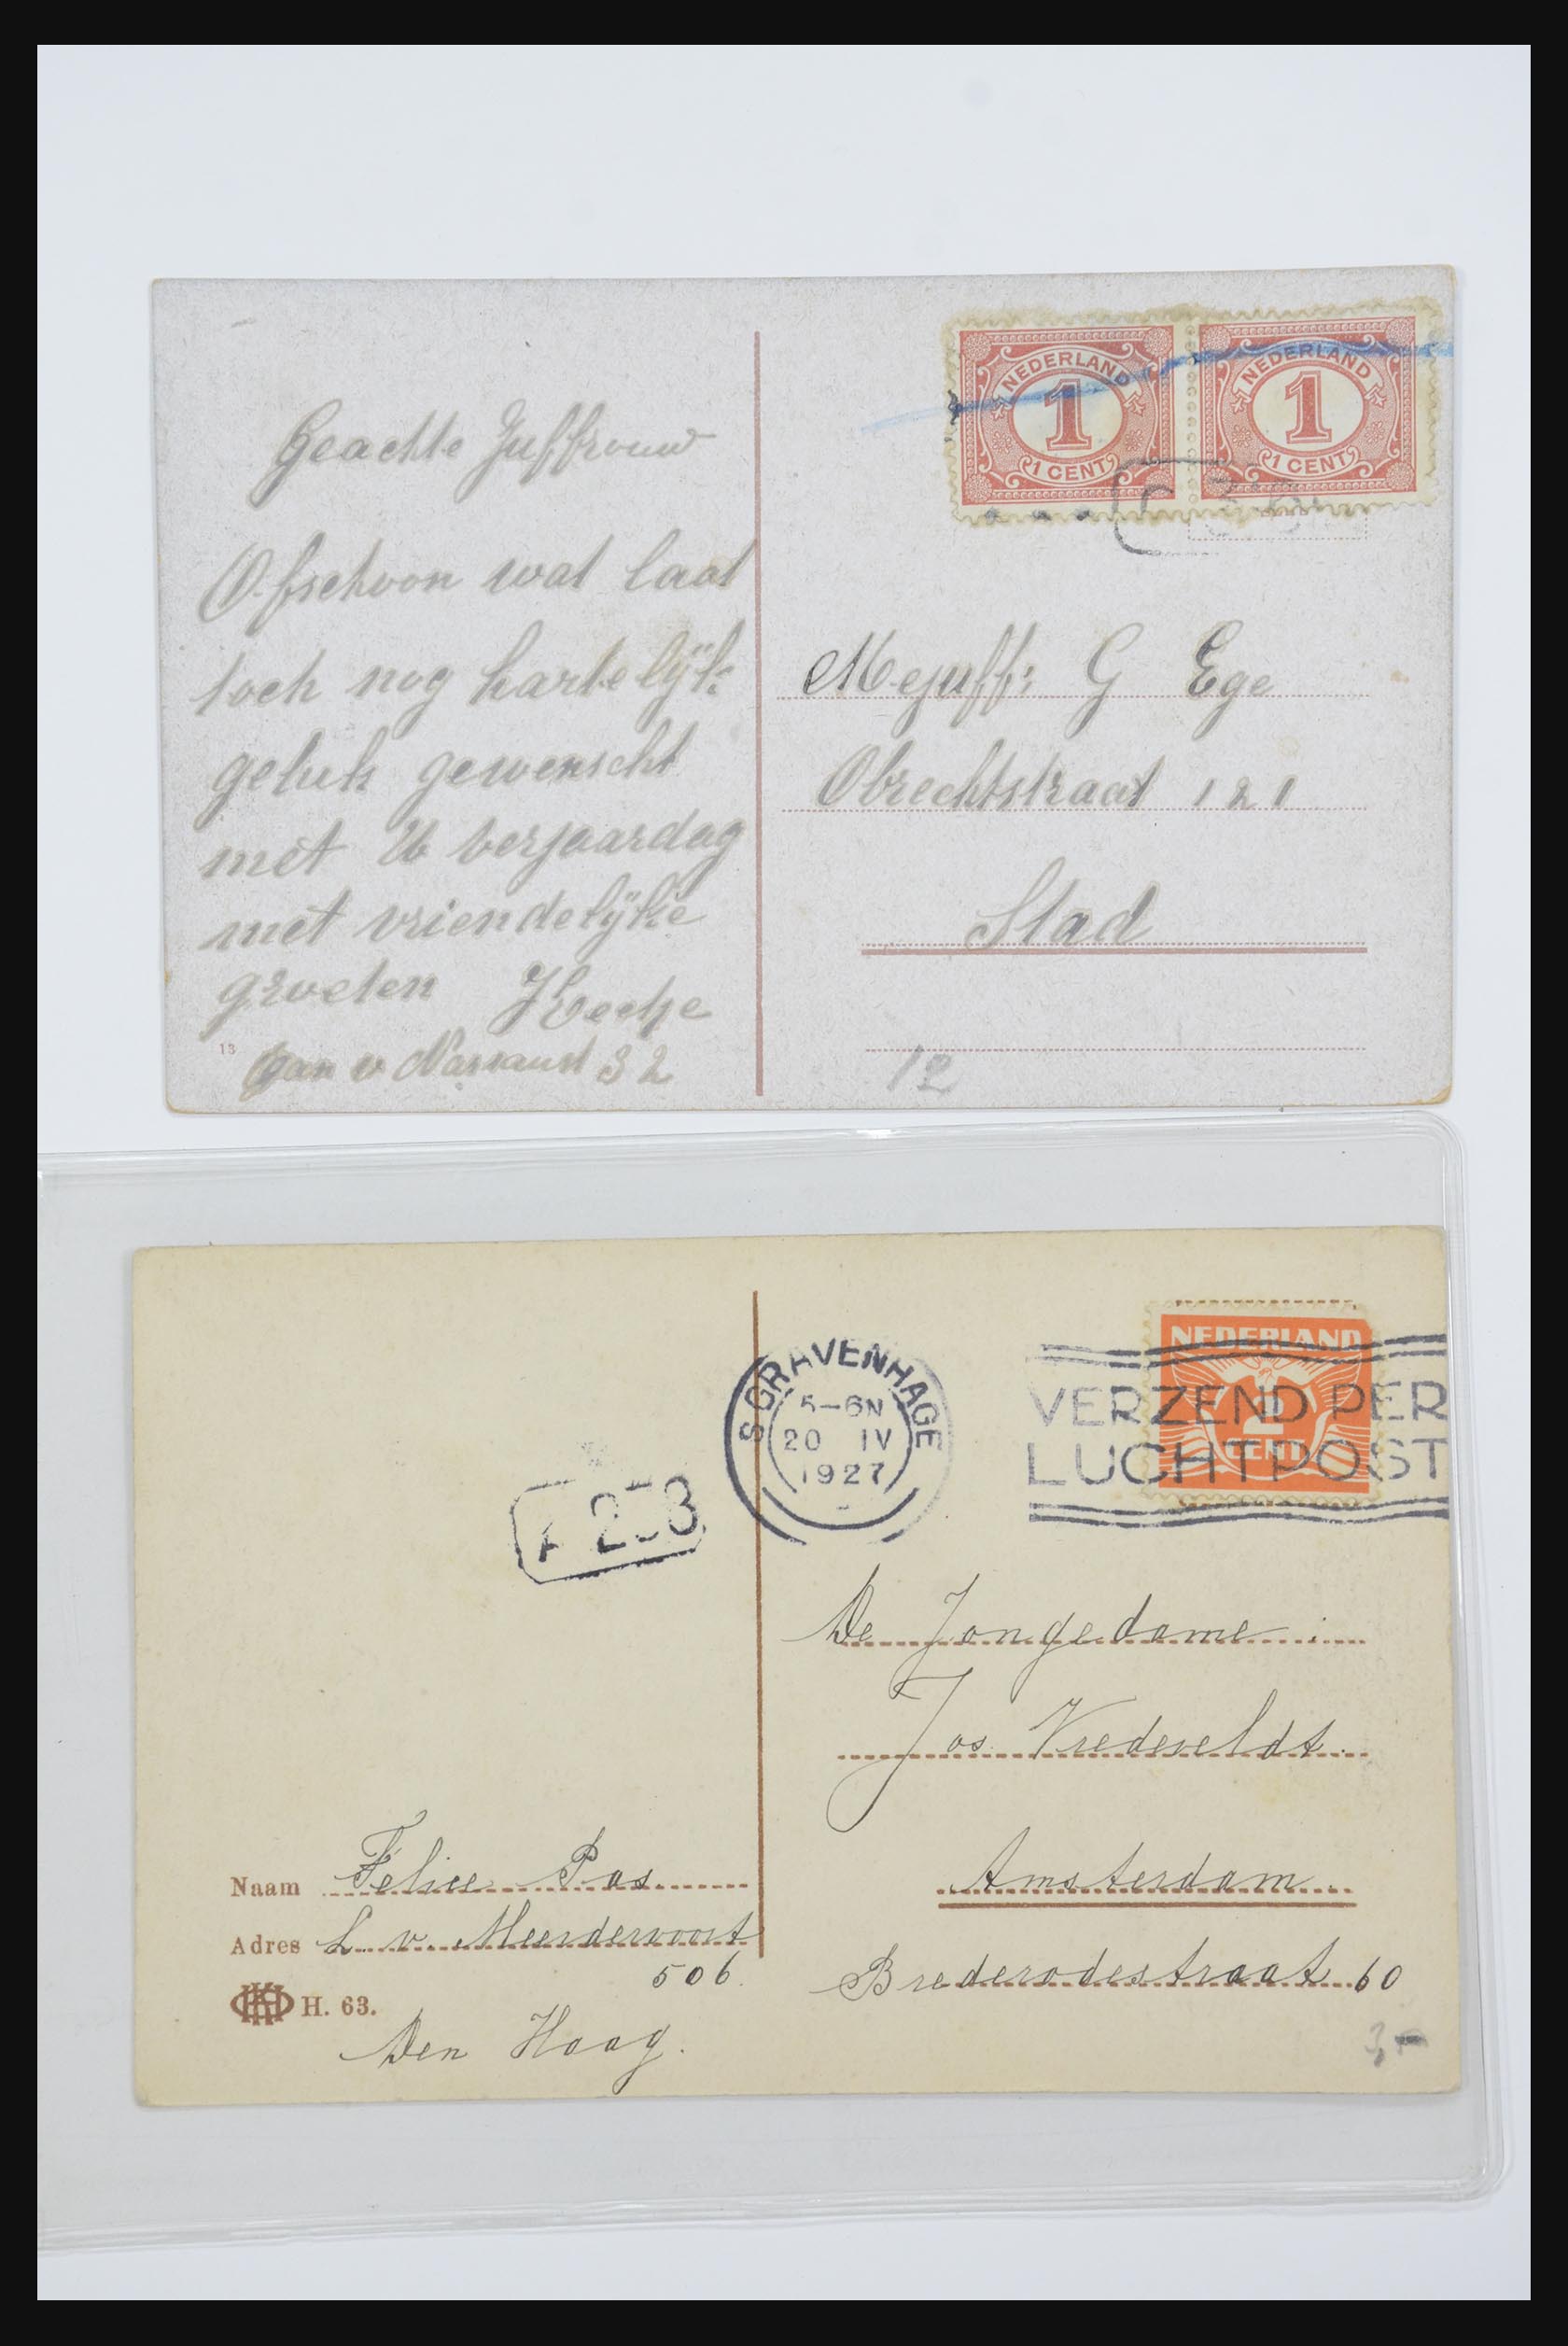 NEDERLAND
1
1 CENT
NEDERLAND
1
1 CENT
Geachte Juffrouw
Ofschoon wat laat
toch nog hartelijk
geluk gewenscht
met U verjaardag
met vriendelijke
groeten
13
v Nassaust 32
Mejuffr: G Ege
Obrechtstraat 121
Stad
12
NEDERLAND
2
CENT
S GRAVENHAGE
5-6N
20 IV
1927
VERZEND PER
LUCHTPOST
De Jongedame
Jos Vredeveldt.
Amsterdam.
Brederodestraat 60
Naam Felice Pas.
Adres L. v. Meerdervoort
506.
H. 63.
Den Haag.
3,-